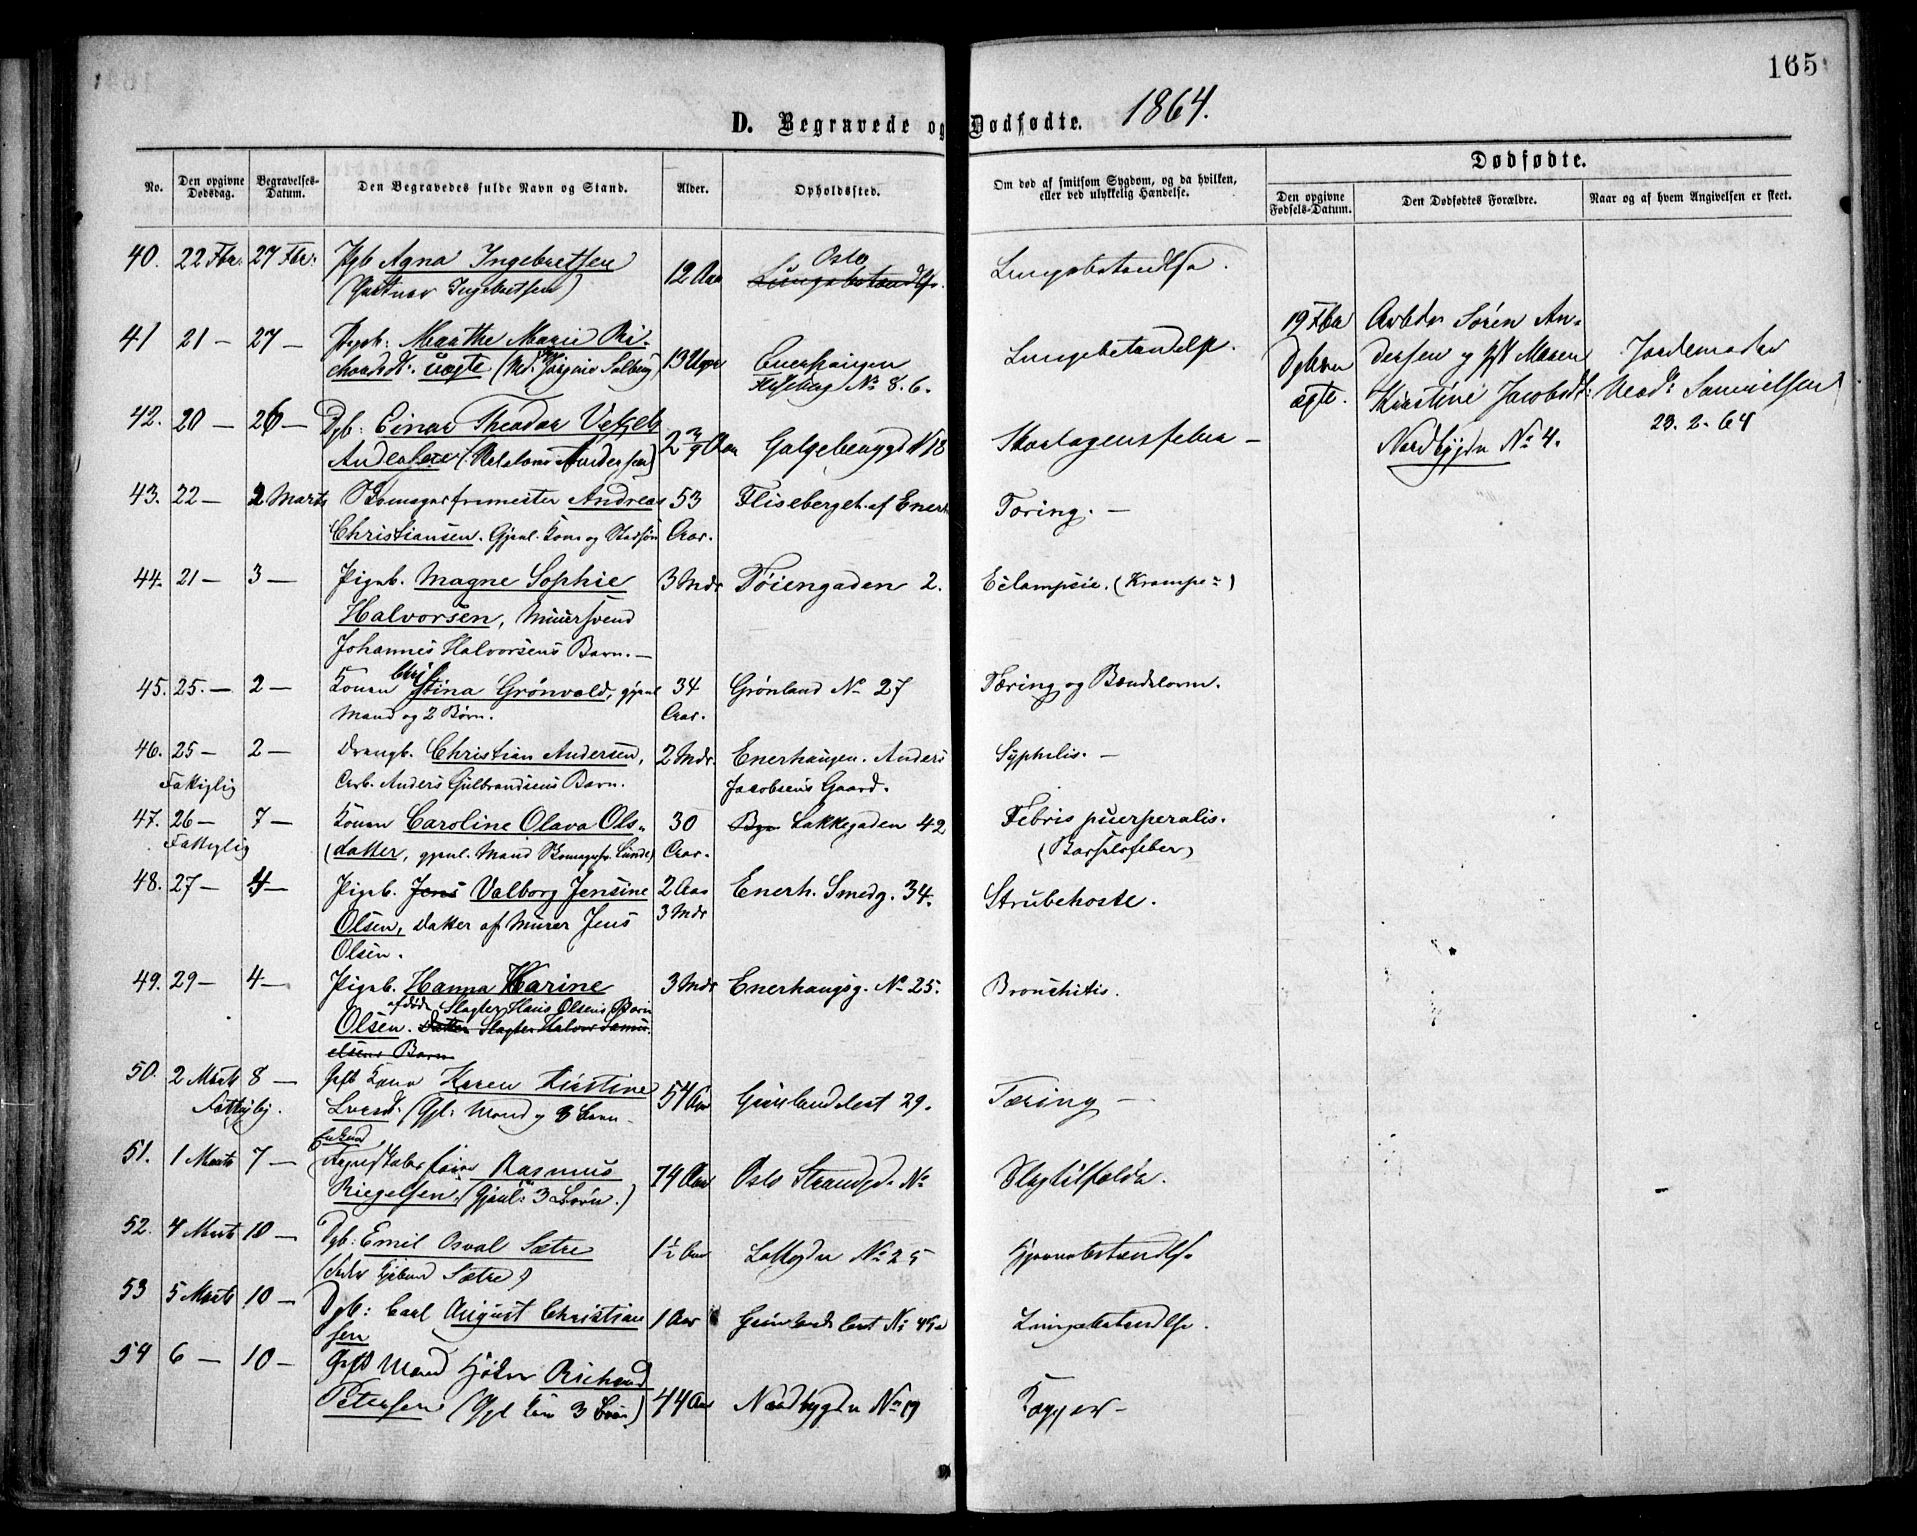 165
D. Begravede og Dødfødte. 1864.
No.
Den opgivne Dødsdag.
Begravelses-Datum.
Den Begravedes fulde Navn og Stand.
Alder.
Opholdssted.
Om død af smitsom Sygdom, og da hvilken, eller ved ulykkelig Hændelse.
Dødfødte.
Den opgivne Fødsels-Datum.
Den Dødfødtes Forældre.
Naar og af hvem Angivelsen er skeet.
40. 22 Fbr: 27 Fbr: Pgb Agna Ingebretsen 12 Aar Oslo Lungebetændelse.
(Gartner Ingebretsen) Lungebetændelse
41 21 — 27 — Pigeb: Marthe Marie Ri- 13 Uger Enerhaugen Lungebetændelse.
chardsdt: uægte
No 8. 6.
19 Fbr Arbdr Søren An-
dersen og Maren Jordemoder
ægte. Kirstine Jacobsdt: Samuelsen
Nordbygdn No 4. 23-2-64
42. 20 — 26 — Dgb: Einar Theodor
Andersen
Skarlagensfeber —
43. 22 — 2 Marts Andreas 53 Fliseberget af Enerh Tæring. —
Christiansen. Gjenl. Kone og Aar.
44. 21 — 3 — Pigeb. Magne Sophie 3 Mdr Tøiengaden 2. Eclampsie. (Krampe)
Halvorsen, Muursvend
Johannes Halvorsens Barn. —
45. 25. — 2 — Konen Christina Grønvold, gjenl 34 Grønland No 27 Tæring og Bændelorm.
Mand og 2 Børn. Aar.
46. 25 — 2 — Drengb. Christian Andersen, 2 Mdr. Enerhaugen. Anders Syphilis. —
Fattiglig Arb. Anders Gulbrandsens Barn. Jacobsens Gaard.
47. 26 — 7 — Konen Caroline Olava Ols- 30 Lakkegaden 42 Febris puerperalis.
Fattiglig datter, gjenl. Mand Aar. (Barselsfeber)
48. 27 — 4 — Pigeb. Jens Valborg Jensine 2 Aar Enerh. Smedg. 34. Strubehoste.
Olsen, Datter af Murer Jens 3 Mdr
Olsen.
49. 29 — 4 — Pigeb. Hanna Karine 3 Mdr Enerhaugsg. No 25. Bronchitis.
afdøde Slagter Hans Olsens Barn
Olsen. Datter Slagter Halvor Samu-
elsens Barn
50. 2 Marts 8 — Gift Kone Karen Kirstine 54 Aar Grønlandsleret 29. Tæring —
Fattiglig. Larsdt: (Gjl: Mand og 8 Børn
51. 1 Marts 7 — Enkemd Rasmus 74 Aar Oslo Strandgd. No Slagtilfælde.
Riegelsen. (Gjenl: 3 Børn.)
52. 4 Marts 10 — Dgb: Emil Osval Sætre 1½ Aar Lakkegdn No 25 Hjernebetændelse
Sætre)
53 5 Marts 10 — Dgb: Carl August Christian 1 Aar Lungebetændelse.
sen
54 6 — 10 — Gift Mand Richard
Petersen (Gjl Kone 3 Børn) 44 Aar Nordbygdn No 19 Kopper —